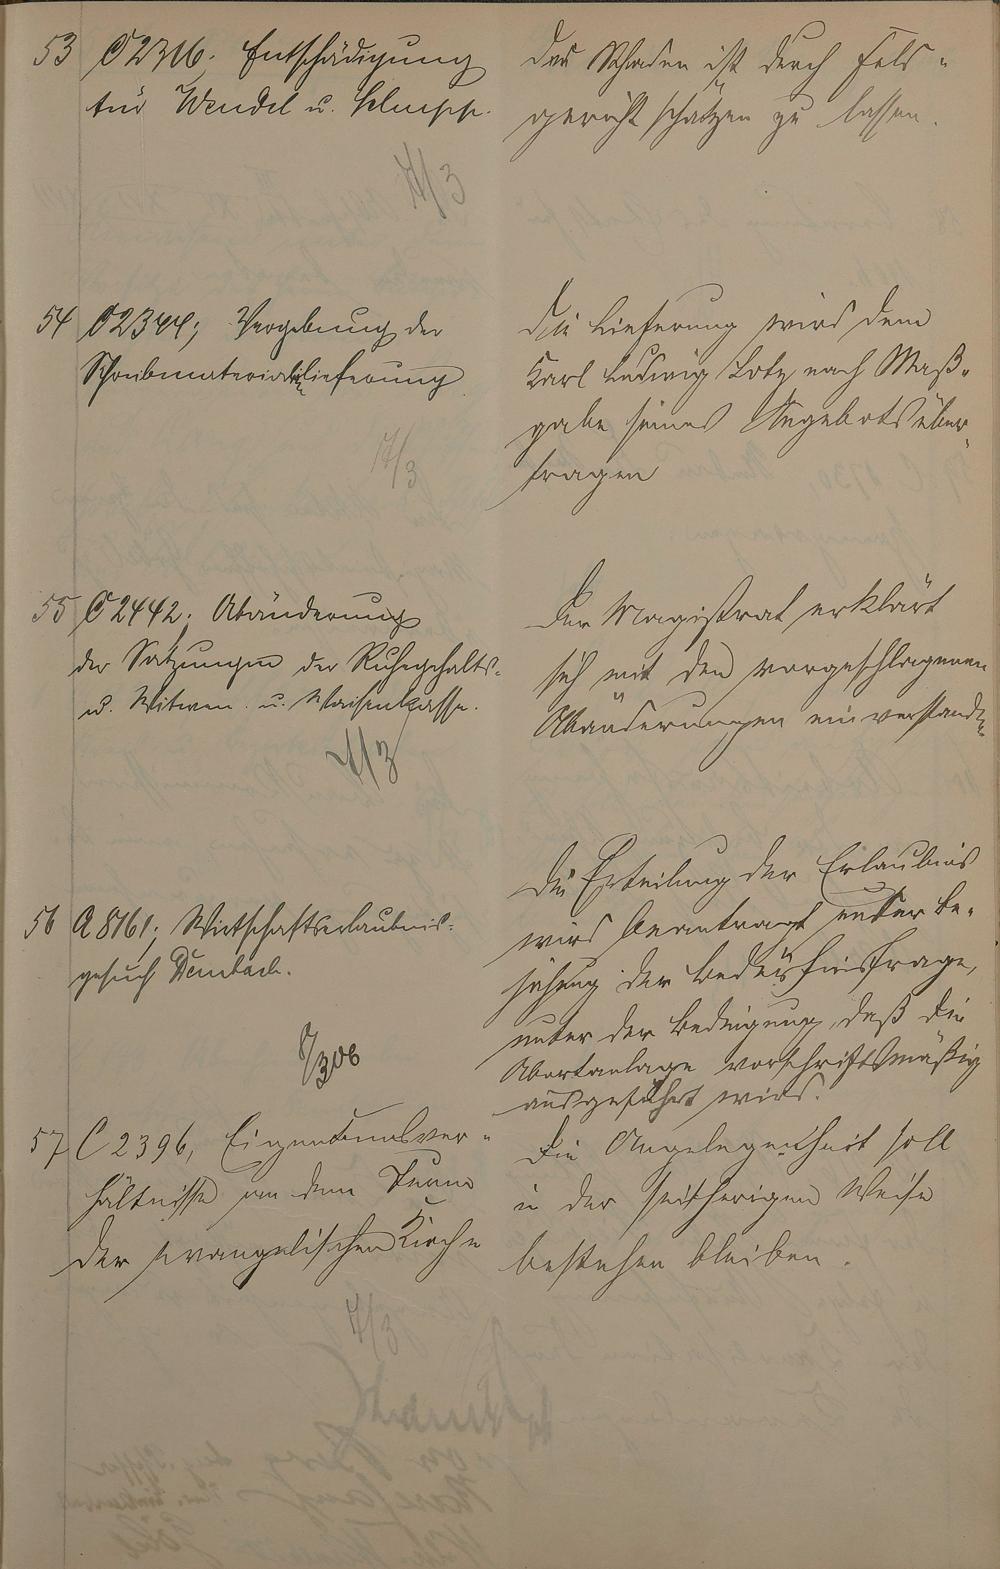 53 C 2316; Entschädigung
für Wendel u. Schupp.
7/3
Der Schaden ist durch Feld-
gericht schätzen zu lassen.
54 C 2344; Vergebung der
Schreibmaterialienlieferung
17/3
Die Lieferung wird dem
Karl Ludwig Lotz nach Maß-
gabe seines Angebots über-
tragen
55 C 2442; Abänderung
der Satzungen der Ruhegehalts-
u. Witwen- u. Waisenkasse.
7/3
Der Magistrat erklärt
sich mit den vorgeschlagenen
Abänderungen einverstanden
56 A 8161; Wirtschaftserlaubnis-
gesuch Dembach.
7/3 06
Die Erteilung der Erlaubnis
wird beantragt unter Be-
jahung der Bedürfnisfrage,
unter der Bedingung, daß die
Abortanlage vorschriftsmäßig
ausgeführt wird.
57 C 2396, Eigentumsver-
hältnisse an dem Turm
der evangelischen Kirche
7/3
Die Angelegenheit soll
in der seitherigen Weise
bestehen bleiben.